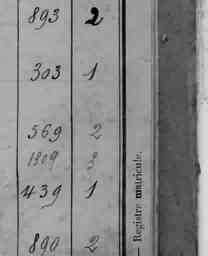 893 2
303 1
569 2
1309 3
439 1
890 2
— Registre matricule.